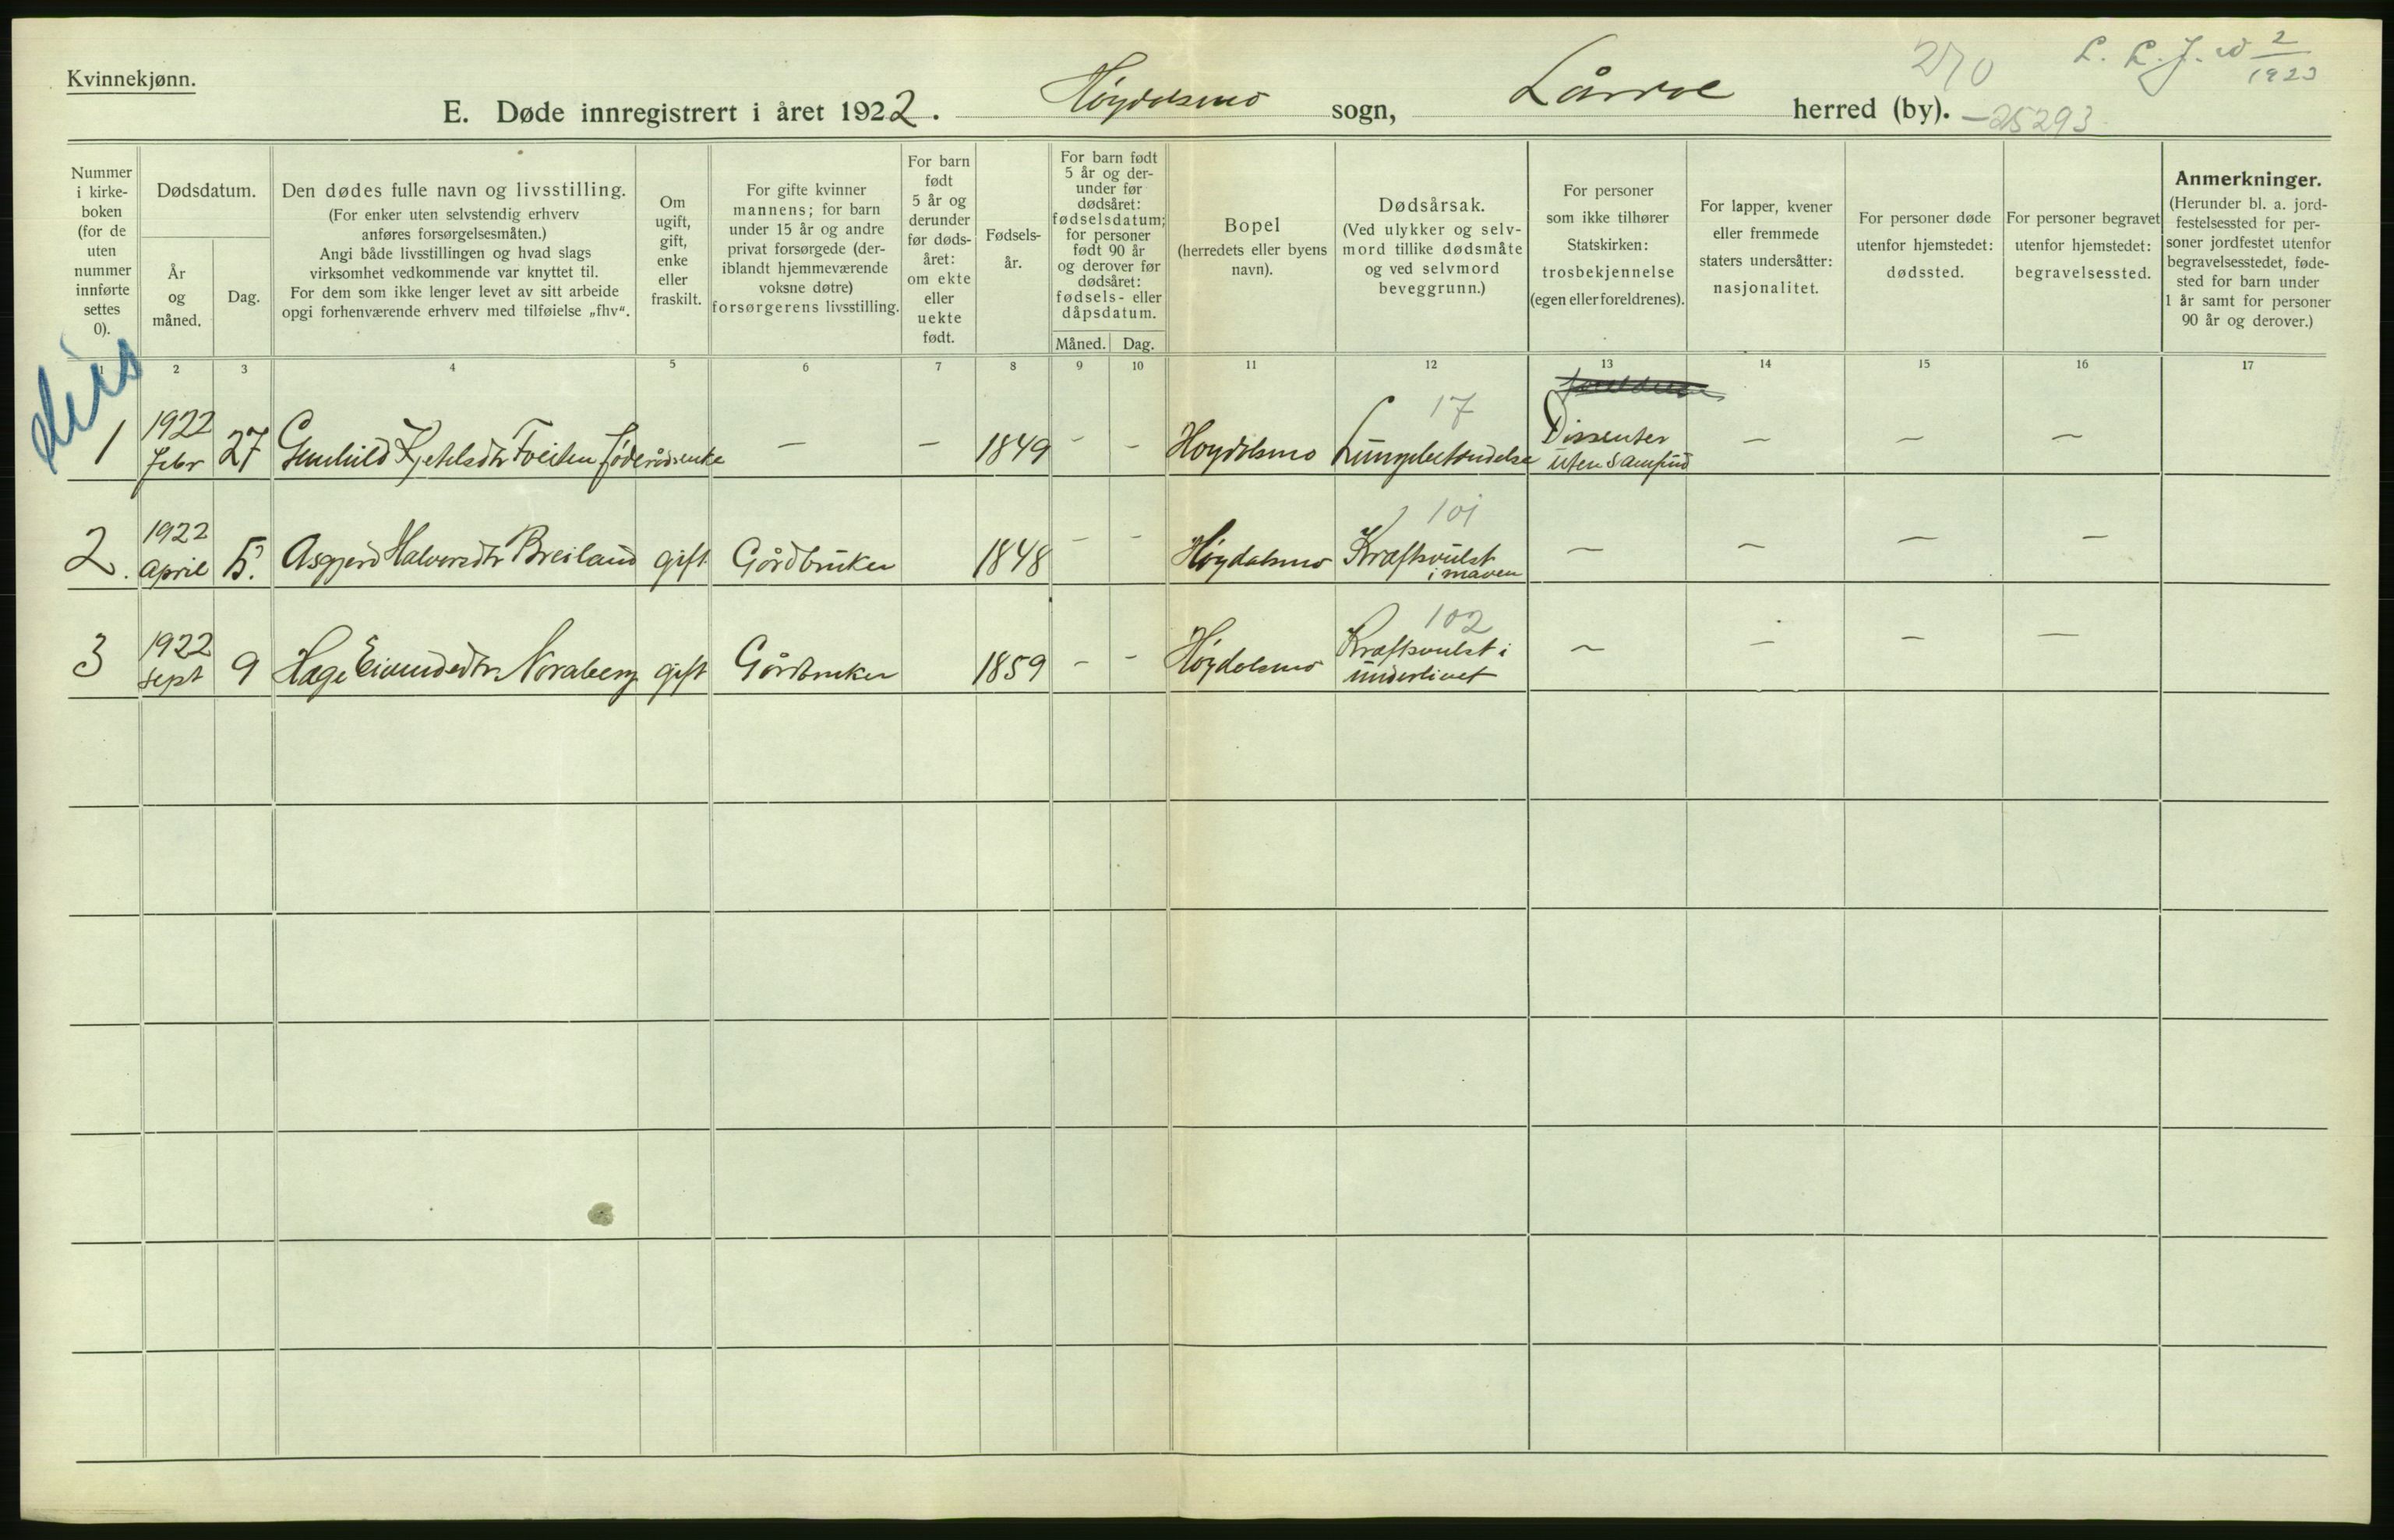 Kvinnekjønn.
270
L. L. J. 2/1923
E. Døde innregistrert i året 1922. Høydalsmo sogn, Lårdal herred (by). —25293
Nummer i kirke-boken (for de uten nummer innførte settes 0).
Dødsdatum.
År og måned.
Dag.
Den dødes fulle navn og livsstilling.
(For enker uten selvstendig erhverv
anføres forsørgelsesmåten.)
Angi både livsstillingen og hvad slags
virksomhet vedkommende var knyttet til.
For dem som ikke lenger levet av sitt arbeide
opgi forhenværende erhverv med tilføielse „fhv“.
Om ugift, gift, enke eller fraskilt.
For gifte kvinner
mannens; for barn
under 15 år og andre
privat forsørgede (der-
iblandt hjemmeværende
voksne døtre)
forsørgerens livsstilling.
For barn født 5 år og derunder før døds-året: om ekte eller uekte født.
Fødsels-år.
For barn født
5 år og der-
under før
dødsåret:
fødselsdatum;
for personer
født 90 år
og derover før
dødsåret:
fødsels- eller
dåpsdatum.
Måned. Dag.
Bopel
(herredets eller byens
navn).
Dødsårsak.
(Ved ulykker og selv-
mord tillike dødsmåte
og ved selvmord
beveggrunn.)
For personer
som ikke tilhører
Statskirken:
trosbekjennelse
(egen eller foreldrenes).
For lapper, kvener
eller fremmede
staters undersåtter:
nasjonalitet.
For personer døde
utenfor hjemstedet:
dødssted.
For personer begravet
utenfor hjemstedet:
begravelsessted.
Anmerkninger.
(Herunder bl. a. jord-
festelsessted for per-
soner jordfestet utenfor
begravelsesstedet, føde-
sted for barn under
1 år samt for personer
90 år og derover.)
1 2 3 4 5 6 7 8 9 10 11 12 13 14 15 16 17
diss
1 1922 Febr 27 Gunhild Kjetelsdtr Tveiten Føderådsenke — — 1849 - - Høydalsmo 17 Lungebetendelse Dissenter uten samfund — — —
2. 1922 April 5. Asgjerd Halvorsdtr Breiland gift Gårdbruker 1848 - - Høydalsmo 101 Kræftsvulst i maven — — — —
3 1922 Sept 9 Hæge Eivindsdtr Noraberg gift Gårdbruker 1859 - - Høydalsmo 102 Kræftsvulst i underlivet — — — —